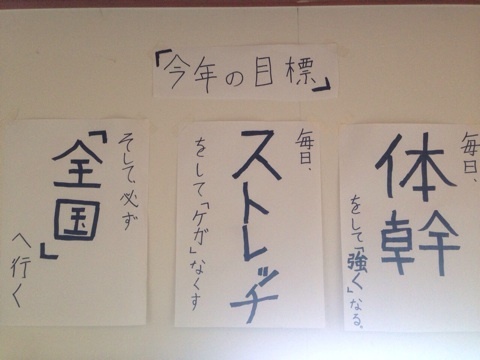 「今年の目標」
毎日、
体幹
をして「強く」なる。
毎日、
ストレッチ
をして「ケガ」なくす
そして、必ず
「全国」
へ行く